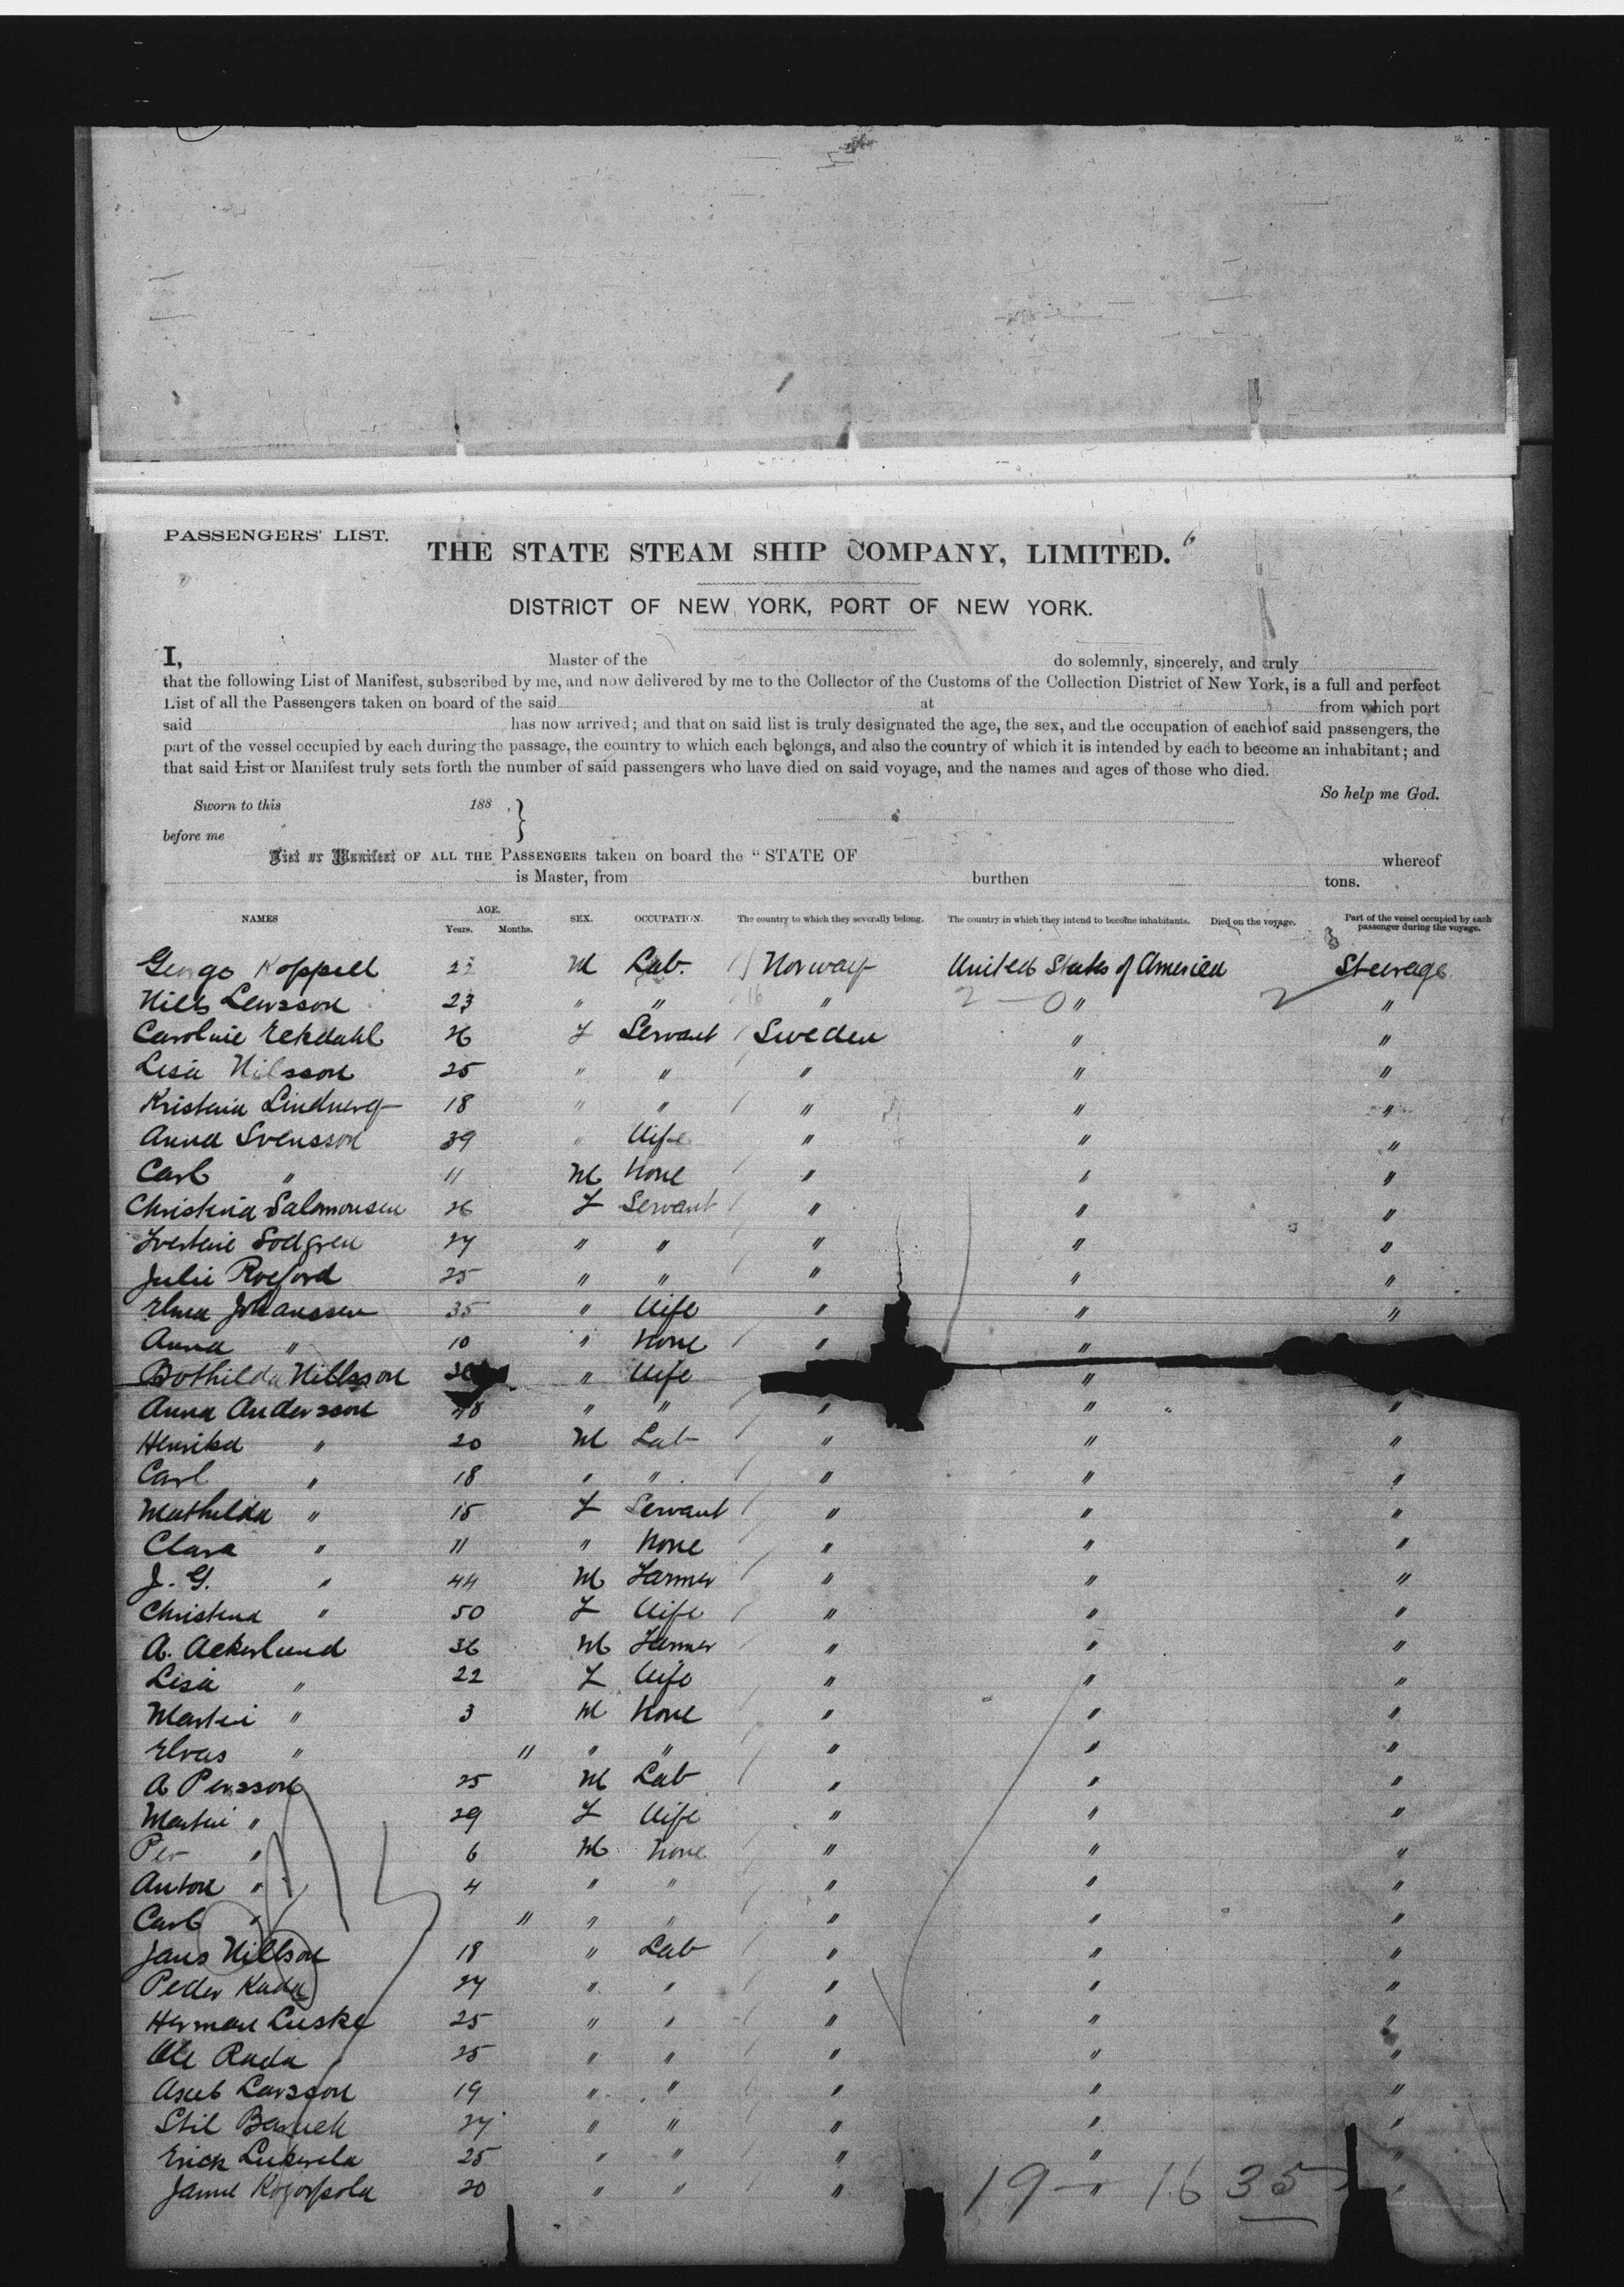 PASSENGERS' LIST.
THE STATE STEAM SHIP COMPANY, LIMITED.
6
DISTRICT OF NEW YORK, PORT OF NEW YORK.
I, Master of the do solemnly, sincerely, and truly
that the following List of Manifest, subscribed by me, and now delivered by me to the Collector of the Customs of the Collection District of New York, is a full and perfect
List of all the Passengers taken on board of the said at from which port
said has now arrived; and that on said list is truly designated the age, the sex, and the occupation of each of said passengers, the
part of the vessel occupied by each during the passage, the country to which each belongs, and also the country of which it is intended by each to become an inhabitant; and
that said List or Manifest truly sets forth the number of said passengers who have died on said voyage, and the names and ages of those who died.
So help me God.
Sworn to this 188 , }
before me
List or Manifest OF ALL THE PASSENGERS taken on board the "STATE OF whereof
is Master, from burthen tons.
NAMES AGE. Years. Months. SEX. OCCUPATION. The country to which they severally belong. The country in which they intend to become inhabitants. Died on the voyage. Part of the vessel occupied by each passenger during the voyage.
George Koppell 22 M Lab. Norway United States of America Steerage
Nills Lewsson 23 " " 16 " 2 - 0 " 2 "
Caroline Eekdahl 26 F Servant Sweden " "
Lisa Nilsson 25 " " " " "
Kristina 18 " " " " "
Anna Svensson 39 " Wife " " "
Carl " 11 M None " " "
Christina Salomonsen 26 F Servant " " "
Sodgren 27 " " " " "
Julie Roeford 25 " " " " "
Elma Johanssen 35 " Wife " " "
Anna " 10 " None " "
Bothilda Nillsson " Wife "
Anna Andersson 48 " " " " "
Henrika " 20 M Lab " " "
Carl " 18 " " " " "
Mathilda " 15 F Servant " " "
Clara " 11 " None " " "
J. G. " 44 M Farmer " " "
Christina " 50 F Wife " " "
A. Ackerlund 36 M Farmer " " "
Lisa " 22 F Wife " " "
Martin " 3 M None " " "
Elvas " " " " " " "
A Persson 25 M Lab " " "
Martin " 29 F Wife " " "
Per " 6 M None " " "
Anton " 4 " " " " "
Carl " " " " " " "
Jans Nillson 18 " Lab " " "
Peder Kada 27 " " " " "
Herman Luske 25 " " " " "
Ole Rada 25 " " " " "
Larsson 19 " " " " "
Stil 27 " " " " "
Erick 25 " " " " "
20 " " " " "
19 - 16 35